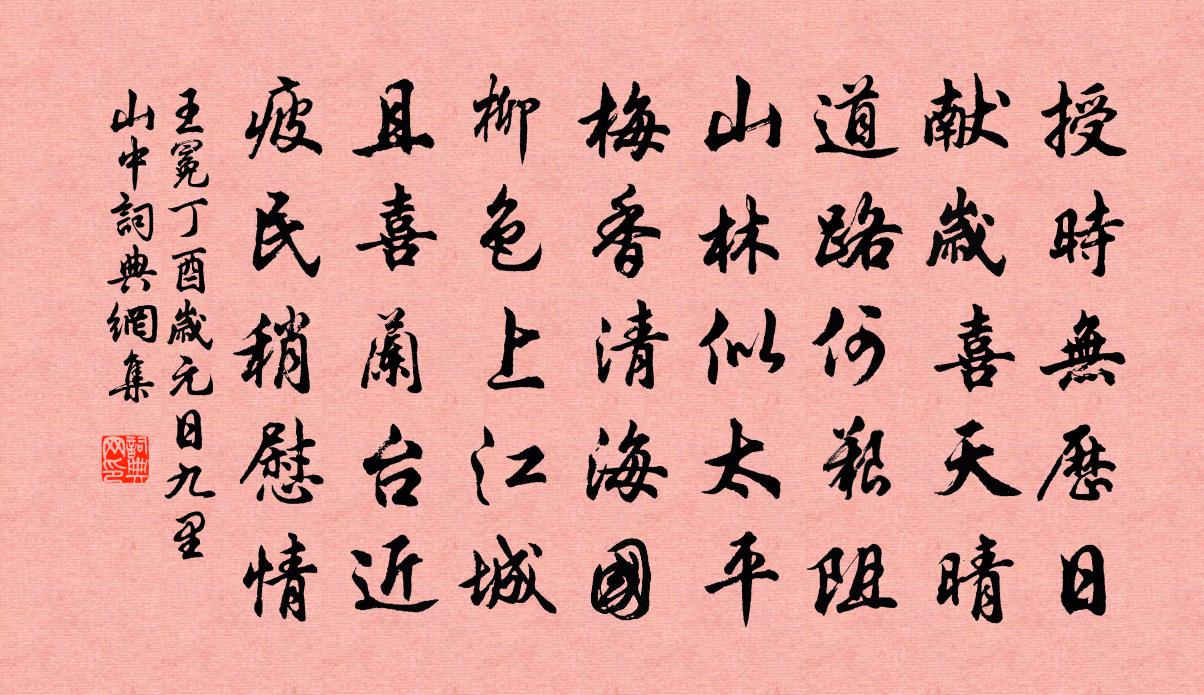 授時無歷日
献歲喜天晴
道路何艱阻
山林似太平
梅香清海國
柳色上江城
且喜蘭台近
疲民稍慰情
王冕丁酉歲元日九里
山中詞典網集
詞典网印